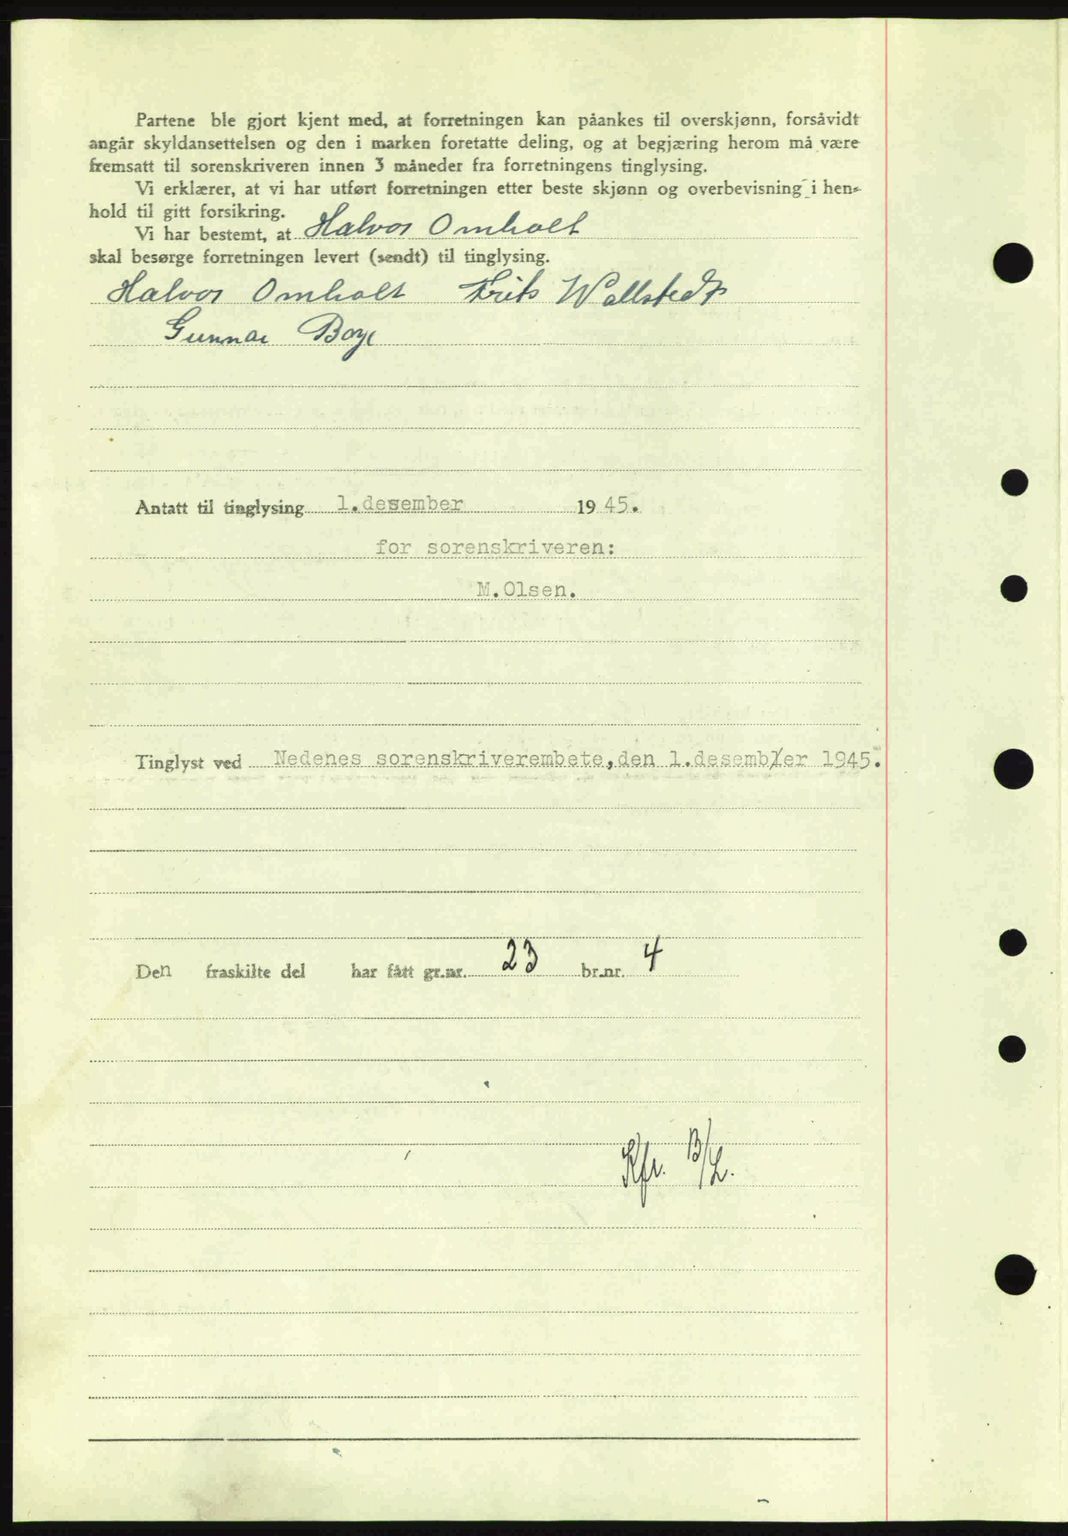 Partene ble gjort kjent med, at forretningen kan påankes til overskjønn, forsåvidt
angår skyldansettelsen og den i marken foretatte deling, og at begjæring herom må være
fremsatt til sorenskriveren innen 3 måneder fra forretningens tinglysing.
Vi erklærer, at vi har utført forretningen etter beste skjønn og overbevisning i hen-
hold til gitt forsikring.
Vi har bestemt, at Halvor Omholt
skal besørge forretningen levert (sendt) til tinglysing.
Halvor Omholt Frits Wallstedt
Gunnar Boye
Antatt til tinglysing 1.desember 1945.
for sorenskriveren:
M.Olsen.
Tinglyst ved Nedenes sorenskriverembete, den 1.desember 1945.
Den fraskilte del har fått gr.nr. 23 br.nr. 4
Kfr. B/L.